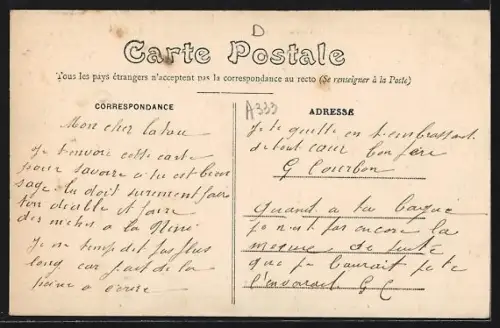 D
Carte Postale
Tous les pays étrangers n'acceptent pas la correspondance au recto (Se renseigner à la Poste)
CORRESPONDANCE
Mon cher
Je t'envoie cette carte
pour savoire si tu est bien
sage tu doit surement faire
ton diable et faire
des niches a la Nini
Je ne temp dit pas plus
long car part de la
peine a écrire
A333
ADRESSE
Je te quitte en t'embrassant
de tout cœur ton père
G Courbon
Quant a ta bague
je n'ait pas encore la
mesure de suite
que je l'aurait je te
l'envoirait G C